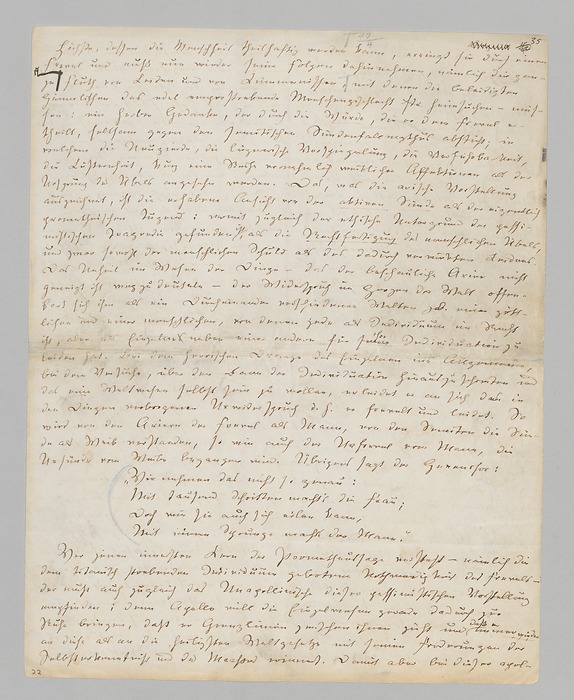 Höchste, dessen die Menschheit theilhaftig werden kann, erringt sie durch einen
Frevel und muß nun wieder seine Folgen dahinnehmen, nämlich die gan-
ze Fluth von Leiden und von Kümmernissen, mit denen die beleidigten
Himmlischen das edel emporstrebende Menschengeschlecht heimsuchen – müs-
sen: ein herber Gedanke, der durch die Würde, die er dem Frevel er-
theilt, seltsam gegen den semitischen Sündenfallmythus absticht, in
welchem die Neugierde, die lügnerische Vorspiegelung, die Verführbarkeit,
die Lüsternheit, kurz eine Reihe vornehmlich weiblicher Affektionen als der
Ursprung des Übels angesehen wurden. Das, was die arische Vorstellung
auszeichnet, ist die erhabene Ansicht von der aktiven Sünde als der eigentlich
prometheischen Tugend: womit zugleich der ethische Untergrund der pessi-
mistischen Tragoedie gefunden ist als die Rechtfertigung des menschlichen Übels,
und zwar sowohl der menschlichen Schuld als des dadurch verwirkten Leidens.
Das Unheil im Wesen der Dinge – das der beschauliche Arier nicht
geneigt ist wegzudeuteln – der Widerspruch im Herzen der Welt offen-
bart sich ihm als ein Durcheinander verschiedener Welten z.B. einer gött-
lichen und einer menschlichen, von denen jede als Individuum im Recht
ist, aber als Einzelnes neben einer anderen für ihre Individuation zu
leiden hat. Bei dem heroischen Drange des Einzelnen ins Allgemeine,
bei dem Versuche, über den Bann der Individuation hinauszuschreiten und
das eine Weltwesen selbst sein zu wollen, erleidet er an sich den in
den Dingen verborgenen Urwiderspruch d.h. er frevelt und leidet. So
wird von den Ariern der Frevel als Mann, von den Semiten die Sün-
de als Weib verstanden, so wie auch der Urfrevel vom Mann, die
Ursünde vom Weibe begangen wird. Übrigens sagt der Hexenchor:
„Wir nehmen das nicht so genau:
Mit tausend Schritten macht's die Frau;
Doch wie sie auch sich eilen kann,
Mit einem Sprunge macht's der Mann."
Wer jenen innersten Kern der Prometheussage versteht – nämlich die
dem titanisch strebenden Individuum gebotene Nothwendigkeit des Frevels –
der muß auch zugleich das Unapollinische dieser pessimistischen Vorstellung
empfinden; denn Apollo will die Einzelwesen gerade dadurch zur
Ruhe bringen, daß er Grenzlinien zwischen ihnen zieht und daß er immer wieder
an diese als an die heiligsten Weltgesetze mit seinen Forderungen der
Selbsterkenntniß und des Maaßes erinnert. Damit aber bei dieser apol-
35
22